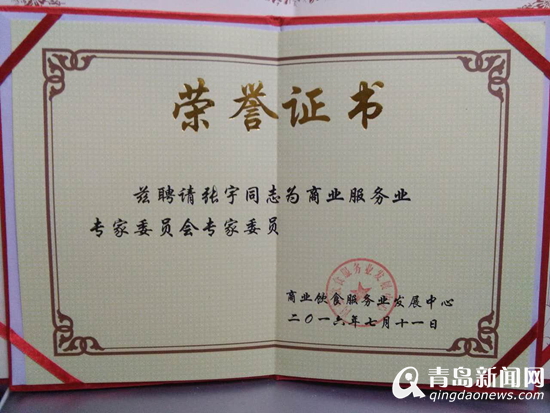 荣誉证书
兹聘请张宇同志为商业服务业
专家委员会专家委员
商业饮食服务业发展中心
二〇一六年七月十一日
青岛新闻网
qingdaonews.com